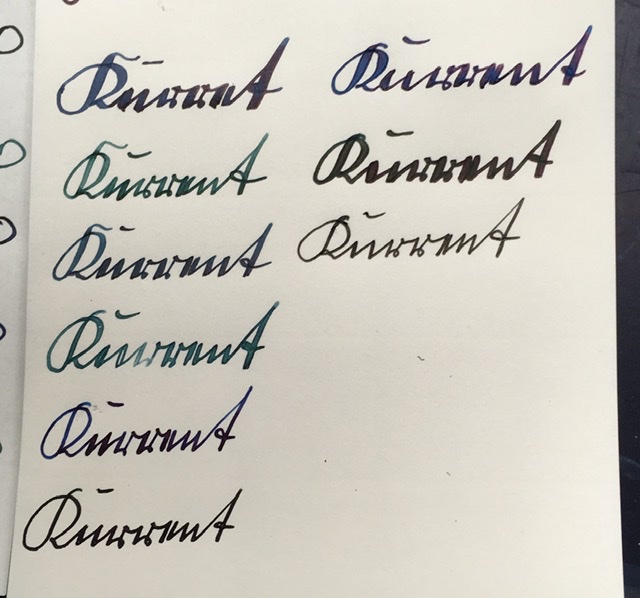 Kurret Kurrent
Kurrent Kurrent
Kurrent Kurrent
Kurrent
Kurrent
Kurrent